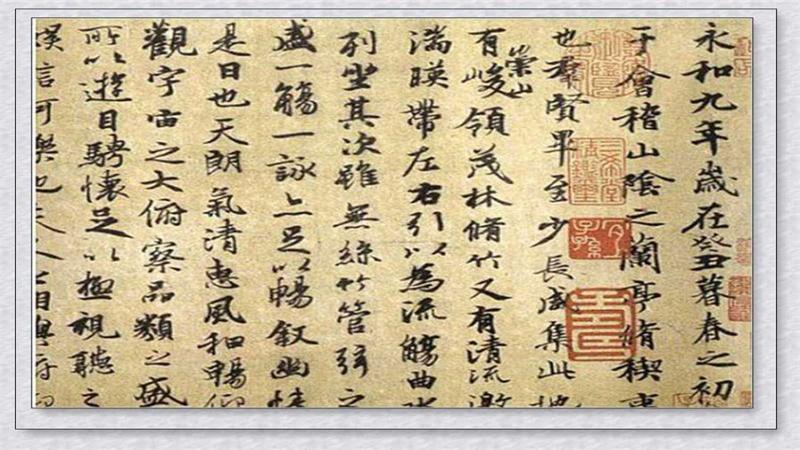 永和九年歲在癸丑暮春之初
于會稽山陰之蘭亭脩稧事
也羣賢畢至少長咸集此地
有崇山峻領茂林脩竹又有清流激
湍暎帶左右引以為流觴曲水
列坐其次雖無絲竹管弦之
盛一觴一詠亦足以暢敘幽情
是日也天朗氣清惠風和暢仰
觀宇宙之大俯察品類之盛
所以遊目騁懷足以極視聽之
娛信可樂也夫人之相與俯仰
三希堂精鑑璽
宜子孫